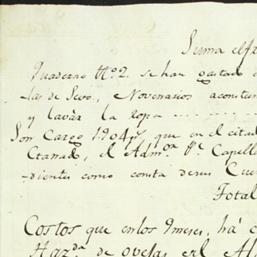 Suma el fr
Quaderno Nº 2. se han gastado
las de Sevo, Novenarios acostum
y lavar la Ropa
Son Cargo 1904 p.s que en el citad
Ctanado, el Adm.or D.n Capell
dientes como consta de sus Cue
Total
Costos que en los 9 meses, há c
Haz.da de ovejas el Al